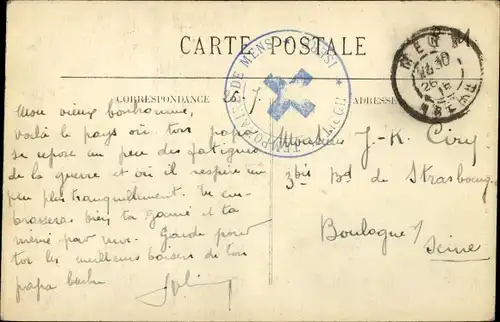 CARTE POSTALE
CORRESPONDANCE
ADRESSE
Mon vieux bonhomme,
voilà le pays où ton papa
se repose un peu des fatigues
de la guerre et où il respire un
peu plus tranquillement. Tu em-
brasseras bien ta et ta
mémé pour moi. Garde pour
toi les meilleurs baisers de ton
papa
Monsieur J-K. Ciry
3bis Bd de Strasbourg
Boulogne s/
Seine
DE MENS